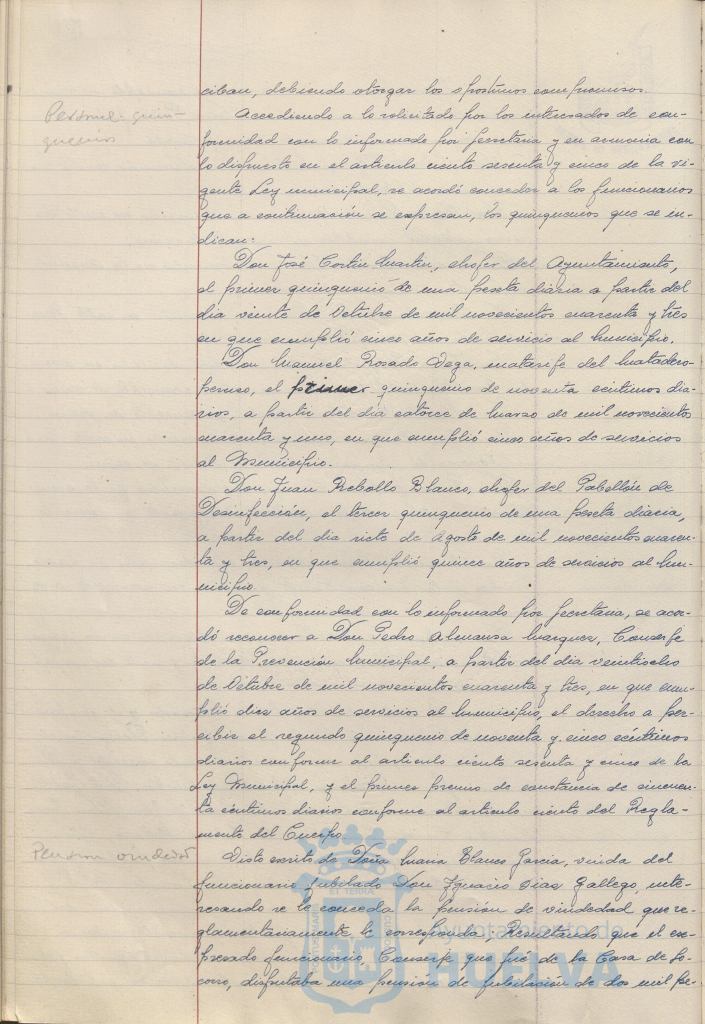 ciban, debiendo otorgar los oportunos compromisos.
Personal: quin-
quenios
Accediendo a lo solicitado por los interesados de con-
formidad con lo informado por Secretaria y en armonia con
lo dispuesto en el articulo ciento sesenta y cinco de la vi-
gente Ley municipal, se acordó conceder a los funcionarios
que a continuación se expresan, los quinquenios que se in-
dican:
Don José Cortin Martin, chofer del Ayuntamiento,
el primer quinquenio de una peseta diaria a partir del
dia veinte de Octubre de mil novecientos cuarenta y tres
en que cumplió cinco años de servicio al municipio.
Don Manuel Rosado Vega, matarife del Matadero
peruno, el primer quinquenio de noventa centimos dia-
rios, a partir del dia catorce de Marzo de mil novecientos
cuarenta y uno, en que cumplió cinco años de servicios
al Municipio.
Don Juan Rebollo Blanco, chofer del Pabellón de
Desinfección, el tercer quinquenio de una peseta diaria,
a partir del dia siete de Agosto de mil novecientos cuaren-
ta y tres, en que cumplió quince años de servicios al Mu-
nicipio.
De conformidad con lo informado por Secretaria, se acor-
dó reconocer a Don Pedro Almansa Marquez, Conserje
de la Prevención Municipal, a partir del dia veintiocho
de Octubre de mil novecientos cuarenta y tres, en que cum-
plió diez años de servicios al Municipio, el derecho a per-
cibir el segundo quinquenio de noventa y cinco céntimos
diarios conforme al articulo ciento sesenta y cinco de la
Ley Municipal, y el primer premio de constancia de cincuen-
ta céntimos diarios conforme al articulo ciento del Regla-
mento del Cuerpo.
Pension viudedad
Visto escrito de Doña Maria Blanco Garcia, viuda del
funcionario jubilado Don Ignacio Diaz Gallego, inte-
resando se le conceda la pensión de viudedad que re-
glamentariamente le corresponda; Resultando que el ex-
presado funcionario, Conserje que fué de la Casa de So-
corro, disfrutaba una pensión de jubilación de dos mil pe-
Ayuntamiento de
HUELVA